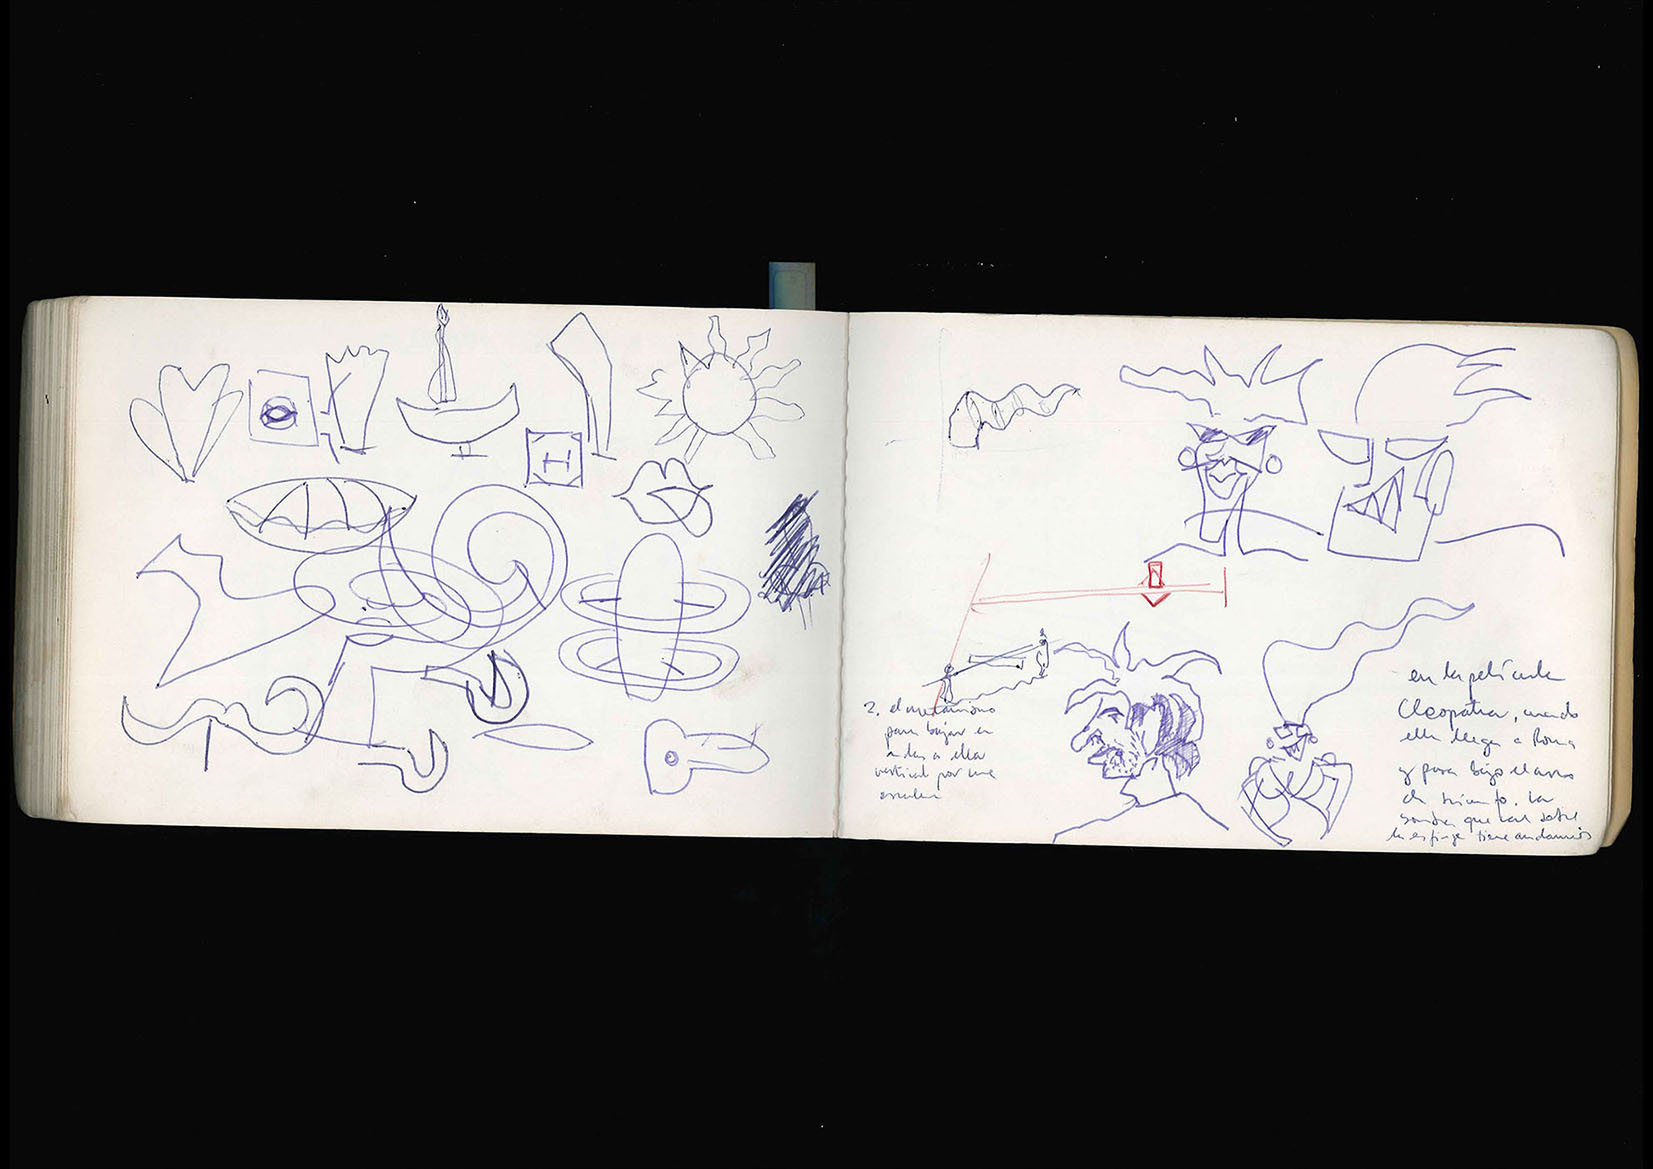 2. el mecanismo
para bajar en
vertical por una
en la película
Cleopatra, cuando
ella llega a Roma
y pasa bajo el arco
de triunfo. La
sombra que cae sobre
la esfinge tiene andamios